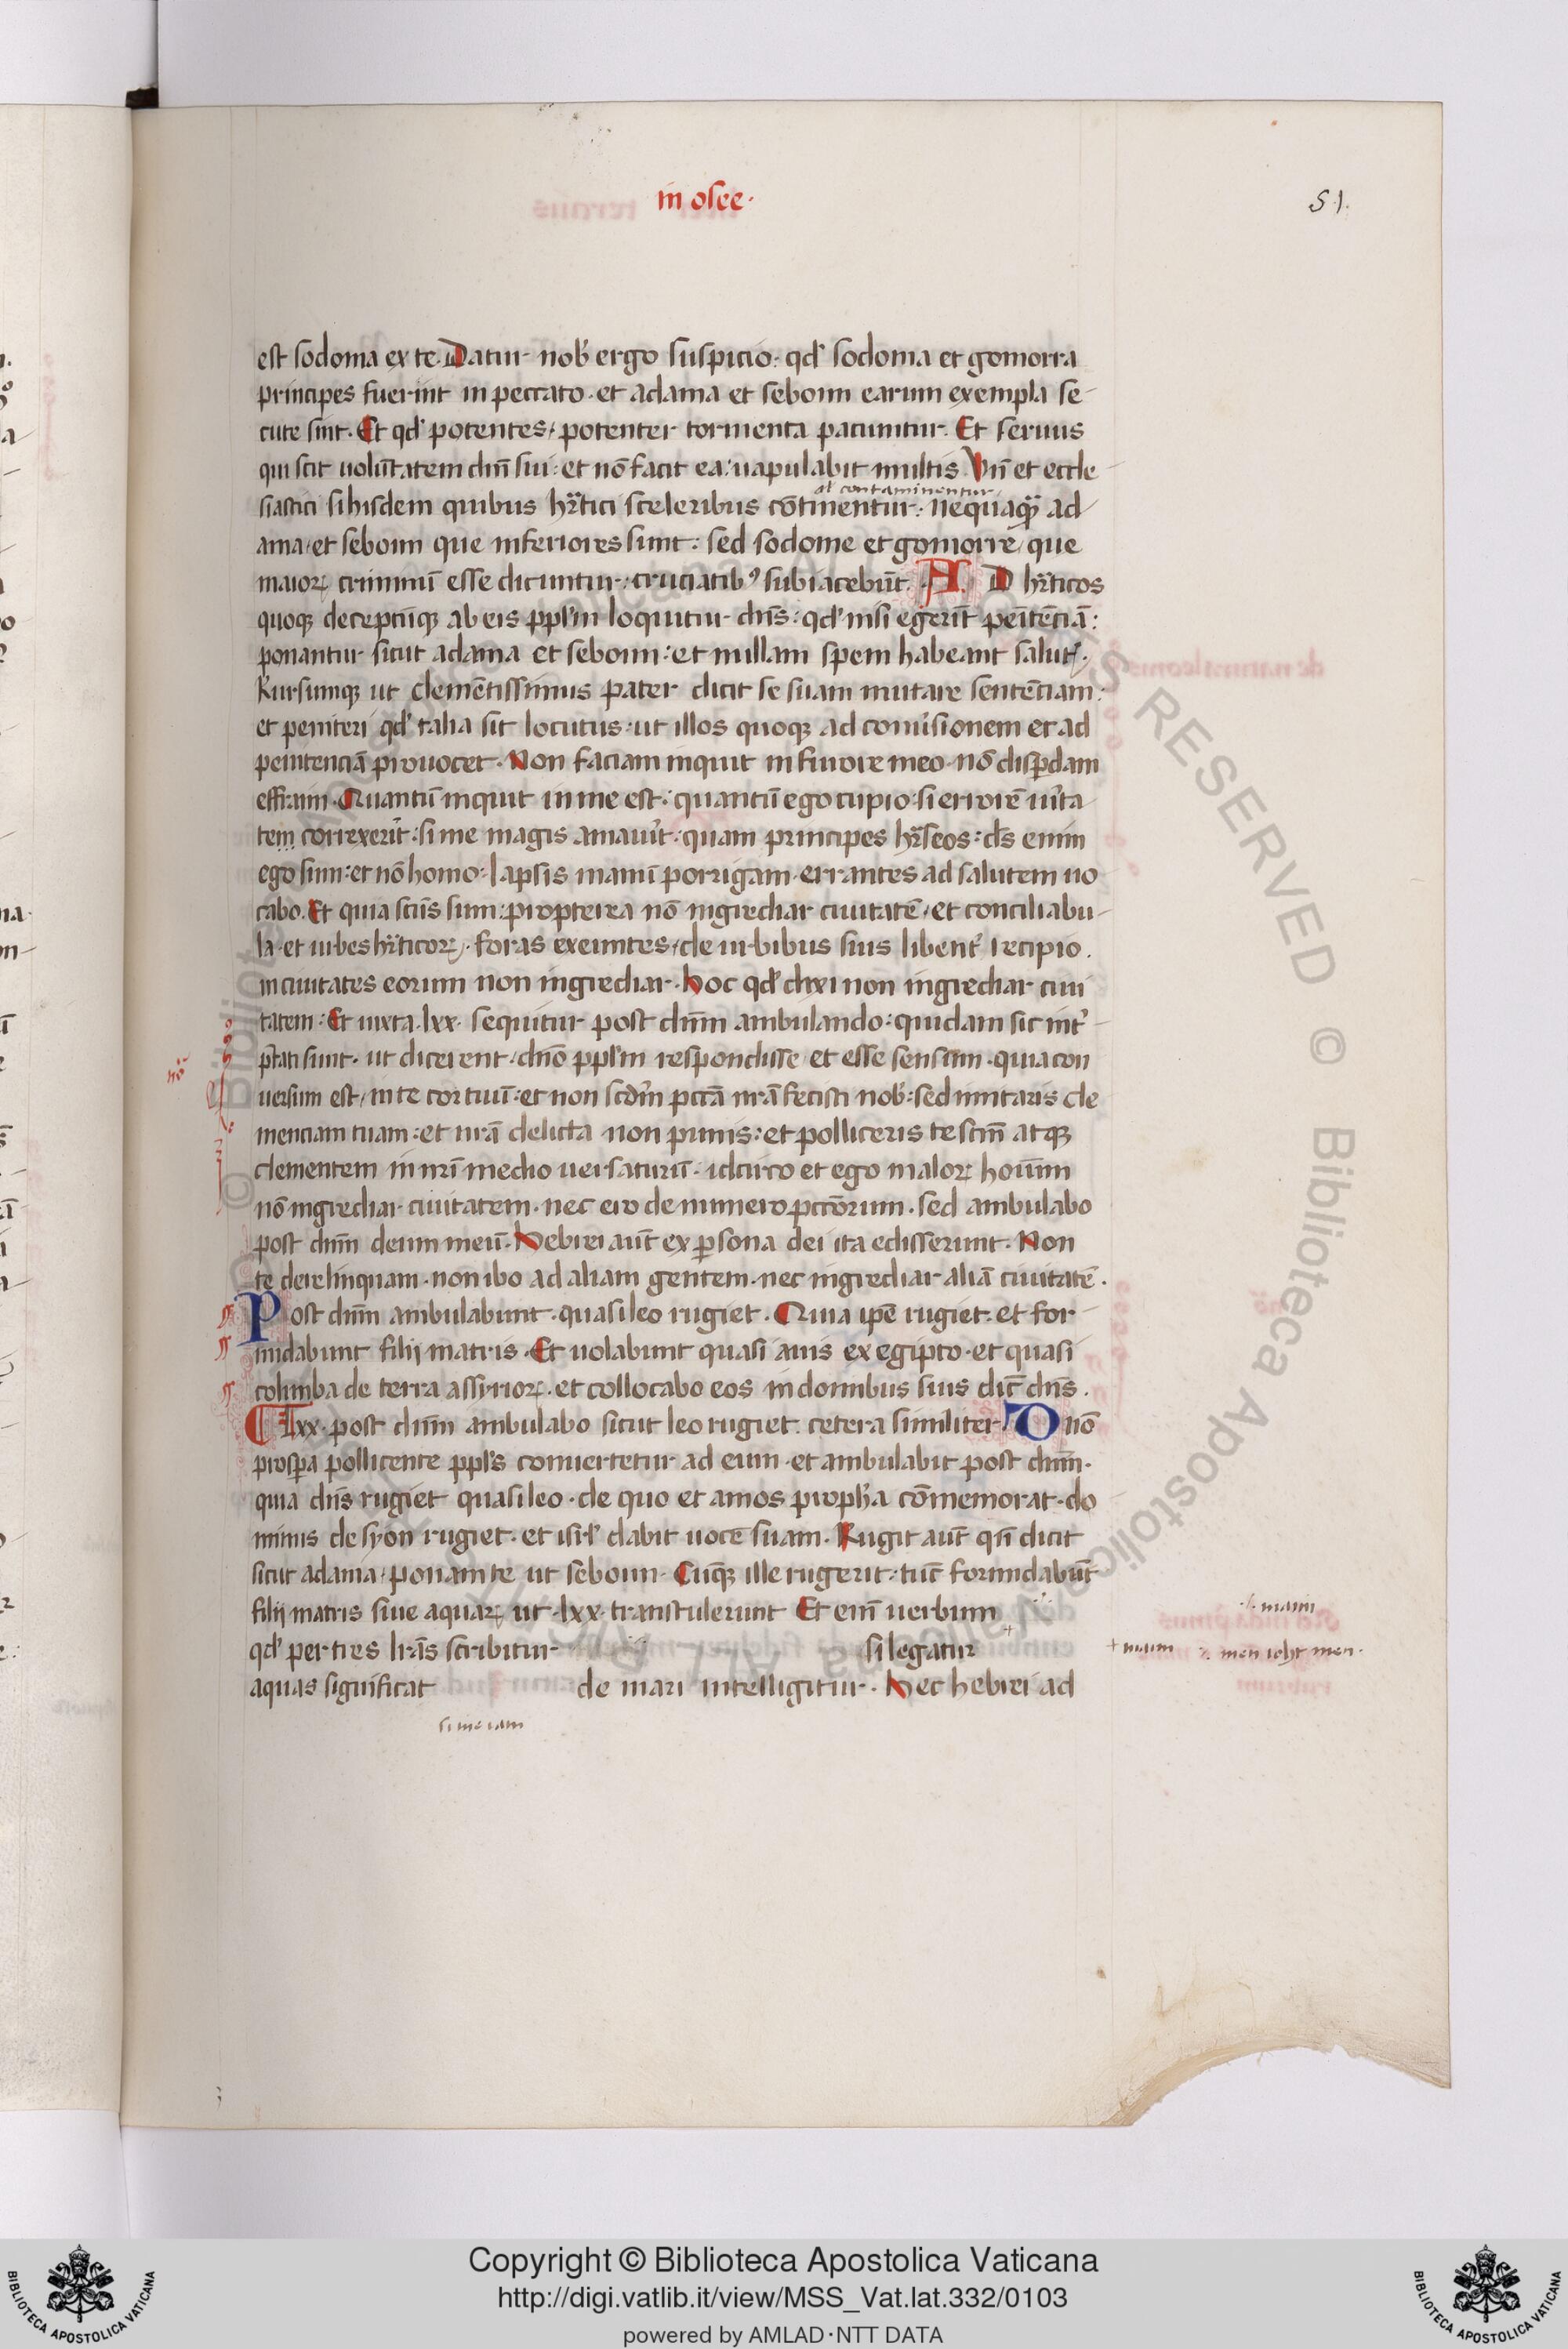 in osee·
51.
est sodoma ex te. Datur nob̾ ergo suspicio· qd̾ sodoma et gomorra
principes fuerint in peccato· et adama et seboim earum exempla se-
cute sint. Et qd̾ potentes, potenter tormenta patiuntur. Et seruus
qui scit uolūtatem dn̄i sui: et nō facit ea: uapulabit multis. Vn̄ et eccle-
al contaminentur
siastici si hisdem quibus hr̄tici sceleribus cōtinentur: nequaqȝ ad-
ama, et seboim que inferiores sunt: sed sodome et gomorre, que
maioꝝ criminū esse dicuntur, cruciatibꝰ subiacebūt. A. D hr̄ticos
quoqȝ deceptūqȝ ab eis ppl̄m loquitur dn̄s: qd̾ nisi egerīt penitētiā:
ponantur sicut adama et seboim: et nullam spem habeant salutꝭ.
Rursumqȝ ut clemētissimus pater dicit se suam mutare sentētiam:
et peniteri qd̾ talia sit locutus· ut illos quoqȝ ad conuersionem et ad
penitenciā prouocet. Non faciam inquit in furore meo· nō disꝑdam
effraim. Quantū inquit in me est: quantū ego cupio· si errorē uīta
tem correxerīt: si me magis amauīt: quam principes hr̄seos: ds̄ enim
ego sum: et nō homo: lapsis manū porrigam· errantes ad salutem uo
cabo. Et quia scūs sum: propterea nō ingrediar ciuitatē, et conciliabu-
la· et urbes hr̄ticoꝝ. foras exeuntes, de urbibus suis libent̾ recipio.
in ciuitates eorum non ingrediar. Hoc qd̾ dixi non ingrediar ciui
tatem: Et iuxta. lxx. sequitur post dn̄m ambulando: quidam sic int̾-
p̄tati sunt. ut dicerent, dn̄o ppl̄m respondisse et esse sensum· quia con
nō
uersum est, in te cor tuū: et non scdm̄ pctā nr̄ā fecisti nob̾: sed imitaris cle
menciam tuam: et nr̄ā delicta non punis: et polliceris te scm̄ atqȝ
clementem in nr̄i medio uersaturū· idcirco et ego maloꝝ hoīum
nō ingrediar ciuitatem· nec ero de numero pctōrum· sed ambulabo
post dn̄m deum meū. Hebrei aūt ex ꝑsona dei ita edisserunt. Non
te derelinquam· non ibo ad aliam gentem· nec ingrediar aliā ciuitatē.
Post dn̄m ambulabunt· quasi leo rugiet. Quia ip̄e rugiet: et for-
midabunt filij matris. Et uolabunt quasi auis ex egipto· et quasi
columba de terra assyrioꝝ. et collocabo eos in domibus suis dic̄ dn̄s.
lxx. post dn̄m ambulabo sicut leo rugiet: cetera similiter. Dnō
prosꝑa pollicente ppl̄s conuertetur ad eum· et ambulabit post dn̄m·
quia dn̄s rugiet quasi leo· de quo et amos proph̄a cōmemorat· do
minus de syon rugiet· et isrl̄ dabit uocē suam. Rugit aūt qn̄ dicit
sicut adama, ponam te ut seboim. Cūqȝ ille rugerit: tūc formidabūt
filij matris siue aquaꝝ ut· lxx· transtulerunt Et enī uerbum
qd̾ per tres lr̄ās scribitur si legatur
+ maim
aquas significat de mari intelligitur. Hec hebrei ad